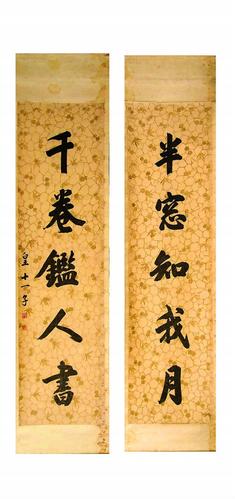 半窓知我月
千卷鑑人書
皇十一子